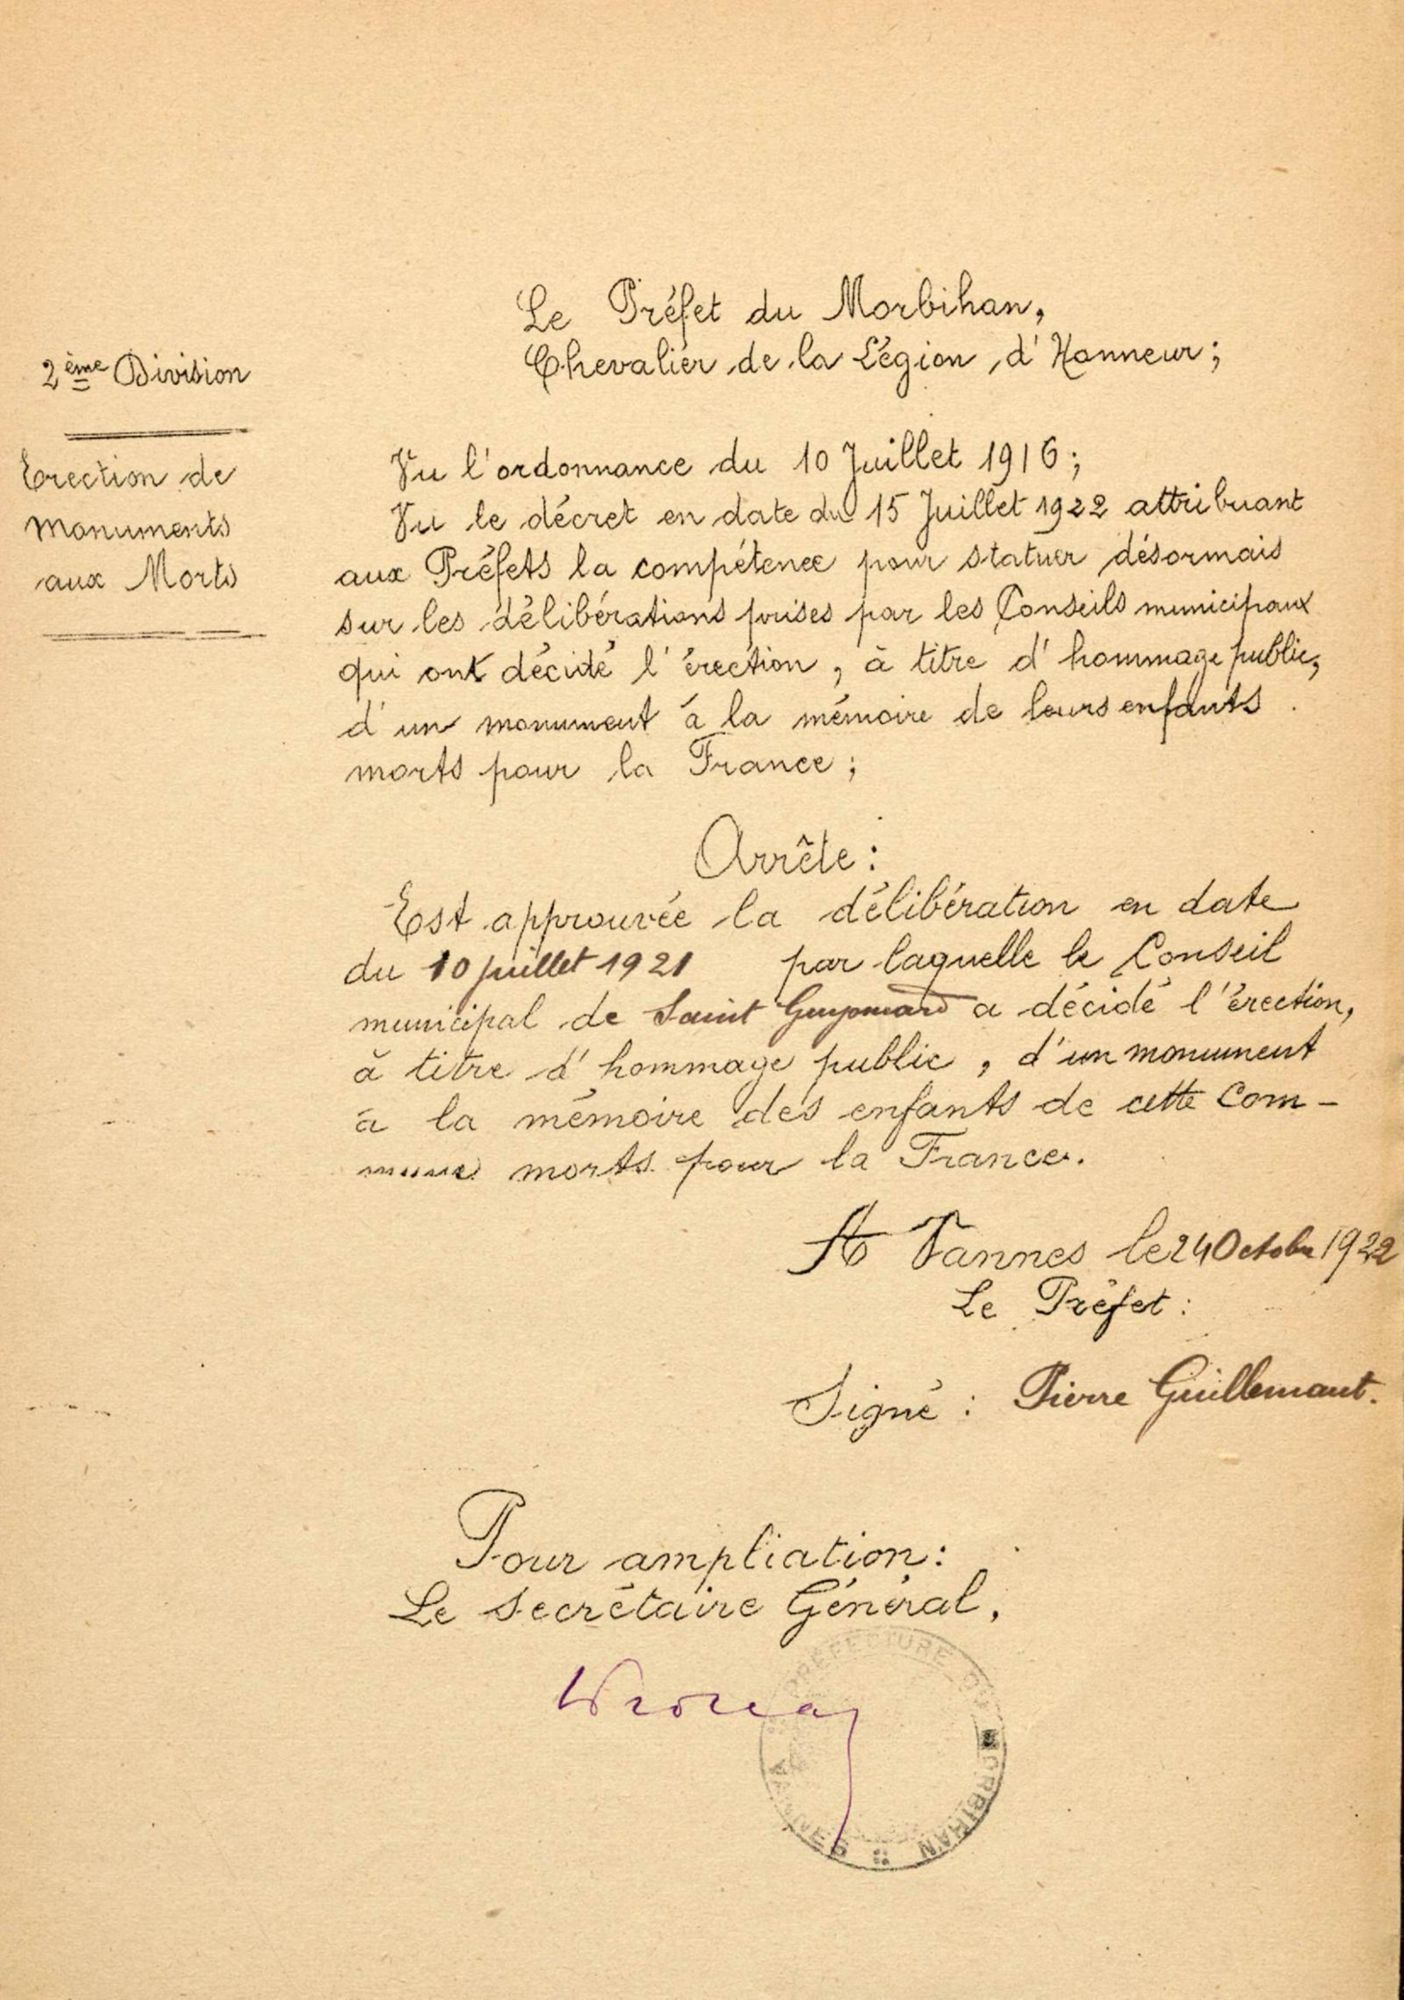 Le Préfet du Morbihan,
Chevalier de la Légion d'Honneur;
2ème Division
Erection de
monuments
aux Morts
Vu l'ordonnance du 10 Juillet 1916;
Vu le décret en date du 15 Juillet 1922 attribuant
aux Préfets la compétence pour statuer désormais
sur les délibérations prises par les Conseils municipaux
qui ont décidé l'érection, à titre d'hommage public,
d'un monument à la mémoire de leurs enfants
morts pour la France;
Arrête:
Est approuvée la délibération en date
du 10 juillet 1921 par laquelle le Conseil
municipal de Saint Guyomard a décidé l'érection,
à titre d'hommage public, d'un monument
à la mémoire des enfants de cette Com-
mune morts pour la France.
A Vannes le 24 Octobre 1922
Le Préfet:
Signé: Pierre Guillemaut.
Pour ampliation:
Le Secrétaire Général,
PREFECTURE DU MORBIHAN
VANNES